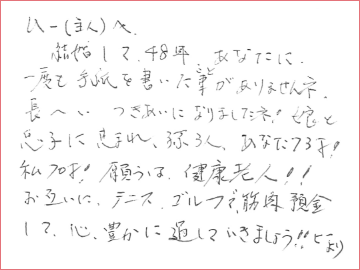 ハー(主人)へ
結婚して、48年、あなたに、
一度も手紙を書いた事がありませんネ。
長〜い つきあいになりましたネ！娘と
息子に恵まれ、孫3人、あなた73才！
私70才！願うは、健康老人！！
お互いに、テニス、ゴルフで、筋肉預金
して、心、豊かに過していきましょう!!
より